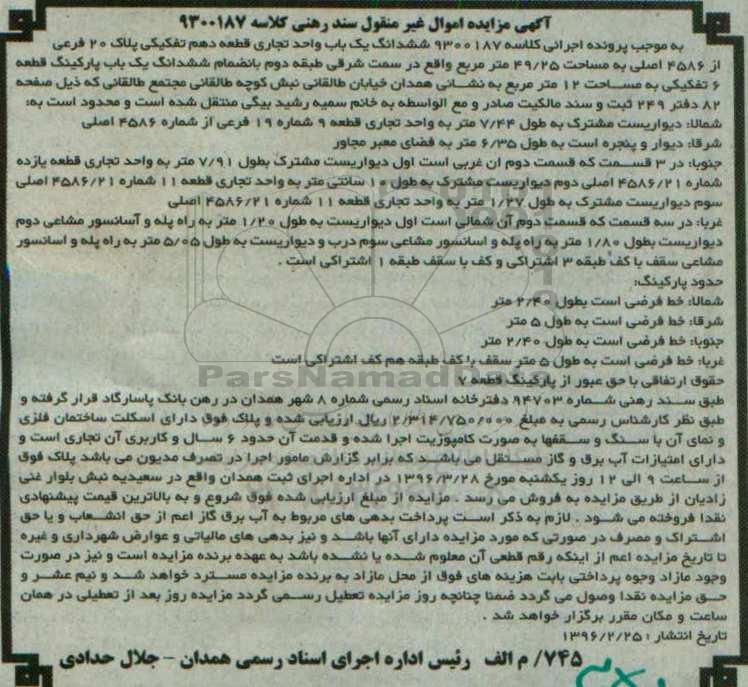 آگهی مزایده اموال غیر منقول سند رهنی کلاسه ۹۳۰۰۱۸۷
به موجب پرونده اجرائی کلاسه ۹۳۰۰۱۸۷ ششدانگ یک باب واحد تجاری قطعه دهم تفکیکی پلاک ۲۰ فرعی
از ۴۵۸۶ اصلی به مساحت ۴۹/۲۵ متر مربع واقع در سمت شرقی طبقه دوم بانضمام ششدانگ یک باب پارکینگ قطعه
۶ تفکیکی به مساحت ۱۲ متر مربع به نشانی همدان خیابان طالقانی نبش کوچه طالقانی مجتمع طالقانی که ذیل صفحه
۸۲ دفتر ۲۴۹ ثبت و سند مالکیت صادر و مع الواسطه به خانم سمیه رشید بیگی منتقل شده است و محدود است به:
شمالا: دیواریست مشترک به طول ۷/۴۴ متر به واحد تجاری قطعه ۹ شماره ۱۹ فرعی از شماره ۴۵۸۶ اصلی
شرقا: دیوار و پنجره است به طول ۶/۳۵ متر به فضای معبر مجاور
جنوبا: در ۳ قسمت که قسمت دوم ان غربی است اول دیواریست مشترک بطول ۷/۹۱ متر به واحد تجاری قطعه یازده
شماره ۴۵۸۶/۲۱ اصلی دوم دیواریست مشترک به طول ۱۰ سانتی متر به واحد تجاری قطعه ۱۱ شماره ۴۵۸۶/۲۱ اصلی
سوم دیواریست مشترک به طول ۱/۲۷ متر به واحد تجاری قطعه ۱۱ شماره ۴۵۸۶/۲۱ اصلی
غربا: در سه قسمت که قسمت دوم آن شمالی است اول دیواریست به طول ۱/۲۰ متر به راه پله و آسانسور مشاعی دوم
دیواریست بطول ۱/۸۰ متر به راه پله و اسانسور مشاعی سوم درب و دیواریست به طول ۵/۰۵ متر به راه پله و اسانسور
مشاعی سقف با کف طبقه ۳ اشتراکی و کف با سقف طبقه ۱ اشتراکی است .
حدود پارکینگ:
شمالا: خط فرضی است بطول ۲/۴۰ متر
شرقا: خط فرضی است به طول ۵ متر
جنوبا: خط فرضی است به طول ۲/۴۰ متر
غربا: خط فرضی است به طول ۵ متر سقف با کف طبقه هم کف اشتراکی است
ParsNamadData
حقوق ارتفاقی با حق عبور از پارکینگ قطعه ۷
طبق سند رهنی شماره ۹۴۷۰۳ دفترخانه اسناد رسمی شماره ۸ شهر همدان در رهن بانک پاسارگاد قرار گرفته و
طبق نظر کارشناس رسمی به مبلغ ۲/۳۱۴/۷۵۰/۰۰۰ ریال ارزیابی شده و پلاک فوق دارای اسکلت ساختمان فلزی
و نمای آن با سنگ و سقفها به صورت کامپوزیت اجرا شده و قدمت آن حدود ۶ سال و کاربری آن تجاری است و
دارای امتیازات آب برق و گاز مستقل می باشد که برابر گزارش مامور اجرا در تصرف مدیون می باشد پلاک فوق
از ساعت ۹ الی ۱۲ روز یکشنبه مورخ ۱۳۹۶/۳/۲۸ در اداره اجرای ثبت همدان واقع در سعیدیه نبش بلوار غنی
زادیان از طریق مزایده به فروش می رسد . مزایده از مبلغ ارزیابی شده فوق شروع و به بالاترین قیمت پیشنهادی
نقدا فروخته می شود . لازم به ذکر است پرداخت بدهی های مربوط به آب برق گاز اعم از حق انشعاب و یا حق
اشتراک و مصرف در صورتی که مورد مزایده دارای آنها باشد و نیز بدهی های مالیاتی و عوارض شهرداری و غیره
تا تاریخ مزایده اعم از اینکه رقم قطعی آن معلوم شده یا نشده باشد به عهده برنده مزایده است و نیز در صورت
وجود مازاد وجوه پرداختی بابت هزینه های فوق از محل مازاد به برنده مزایده مسترد خواهد شد و نیم عشر و
حق مزایده نقدا وصول می گردد ضمنا چنانچه روز مزایده تعطیل رسمی گردد مزایده روز بعد از تعطیلی در همان
ساعت و مکان مقرر برگزار خواهد شد .
تاریخ انتشار : ۱۳۹۶/۲/۲۵
۷۴۵/ م الف رئیس اداره اجرای اسناد رسمی همدان - جلال حدادی